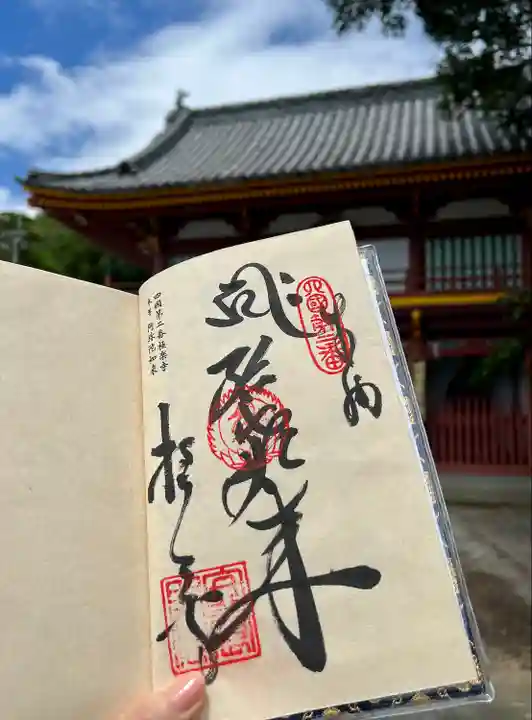 奉納
四國第二番
阿弥陀如来
極楽寺
四国第二番極楽寺
本尊 阿弥陀如来